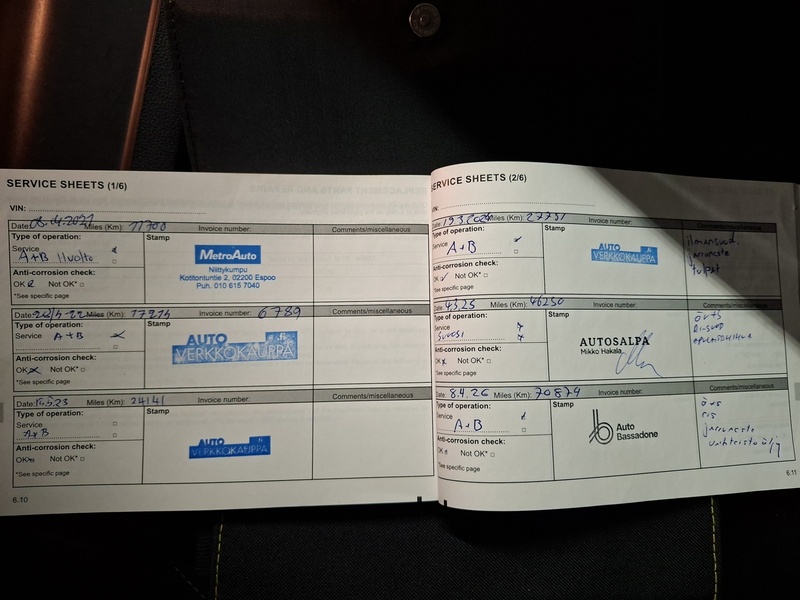 SERVICE SHEETS (1/6)
VIN:
Date: 08.4.2021 Miles (Km): 11700 Invoice number: Comments/miscellaneous
Type of operation: Stamp
Service
A+B Huolto
Anti-corrosion check:
OK Not OK*
*See specific page
MetroAuto
Niittykumpu
Kotitontuntie 2, 02200 Espoo
Puh. 010 615 7040
Date: Miles (Km): 17215 Invoice number: 6789 Comments/miscellaneous
Type of operation: Stamp
Service A+B
Anti-corrosion check:
OK Not OK*
*See specific page
AUTO
VERKKOKAUPPA
.fi
Date: 15.5.23 Miles (Km): 24141 Invoice number: Comments/miscellaneous
Type of operation: Stamp
Service
A+B
Anti-corrosion check:
OK Not OK*
*See specific page
AUTO
VERKKOKAUPPA
6.10
SERVICE SHEETS (2/6)
VIN:
Date: 19.3.2024 Miles (Km): 27751 Invoice number: Comments/miscellaneous
Type of operation: Stamp
Service
A+B
Anti-corrosion check:
OK Not OK*
*See specific page
AUTO
VERKKOKAUPPA
ilmansuod.
jarruneste
tulpat
Date: 4.3.25 Miles (Km): 46250 Invoice number: Comments/miscellaneous
Type of operation: Stamp
Service
Anti-corrosion check:
OK Not OK*
*See specific page
AUTOSALPA
Mikko Hakala
Date: 8.4.26 Miles (Km): 70879 Invoice number: Comments/miscellaneous
Type of operation: Stamp
Service
A+B
Anti-corrosion check:
OK Not OK*
*See specific page
Auto
Bassadone
jarruneste
vaihteistoöljy
6.11